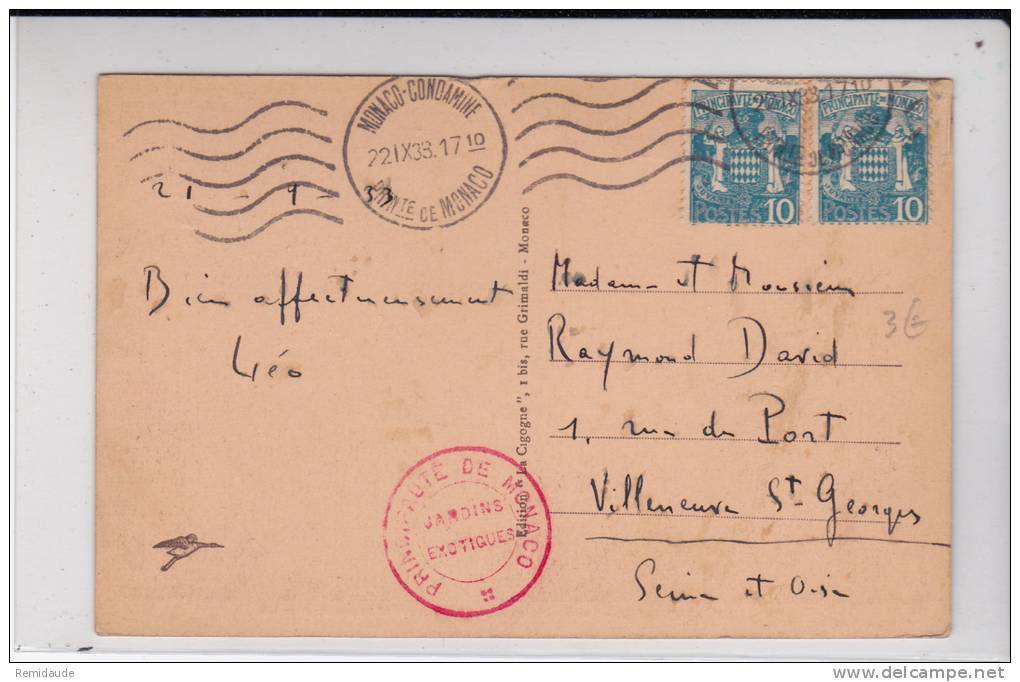 MONACO-CONDAMINE
22 IX 33. 17 10
PRINTE DE MONACO
PRINCIPAUTE-MONACO
POSTES 10
PRINCIPAUTE-MONACO
POSTES 10
21 - 9 - 33
Bien affectueusement
Léo
Madame et Monsieur
Raymond David
1, rue du Port
Villeneuve St Georges
Seine et Oise
3€
Edition " La Cigogne ", 1 bis, rue Grimaldi - Monaco
PRINCIPAUTÉ DE MONACO
JARDINS
EXOTIQUES
Remidaude
www.delcampe.net